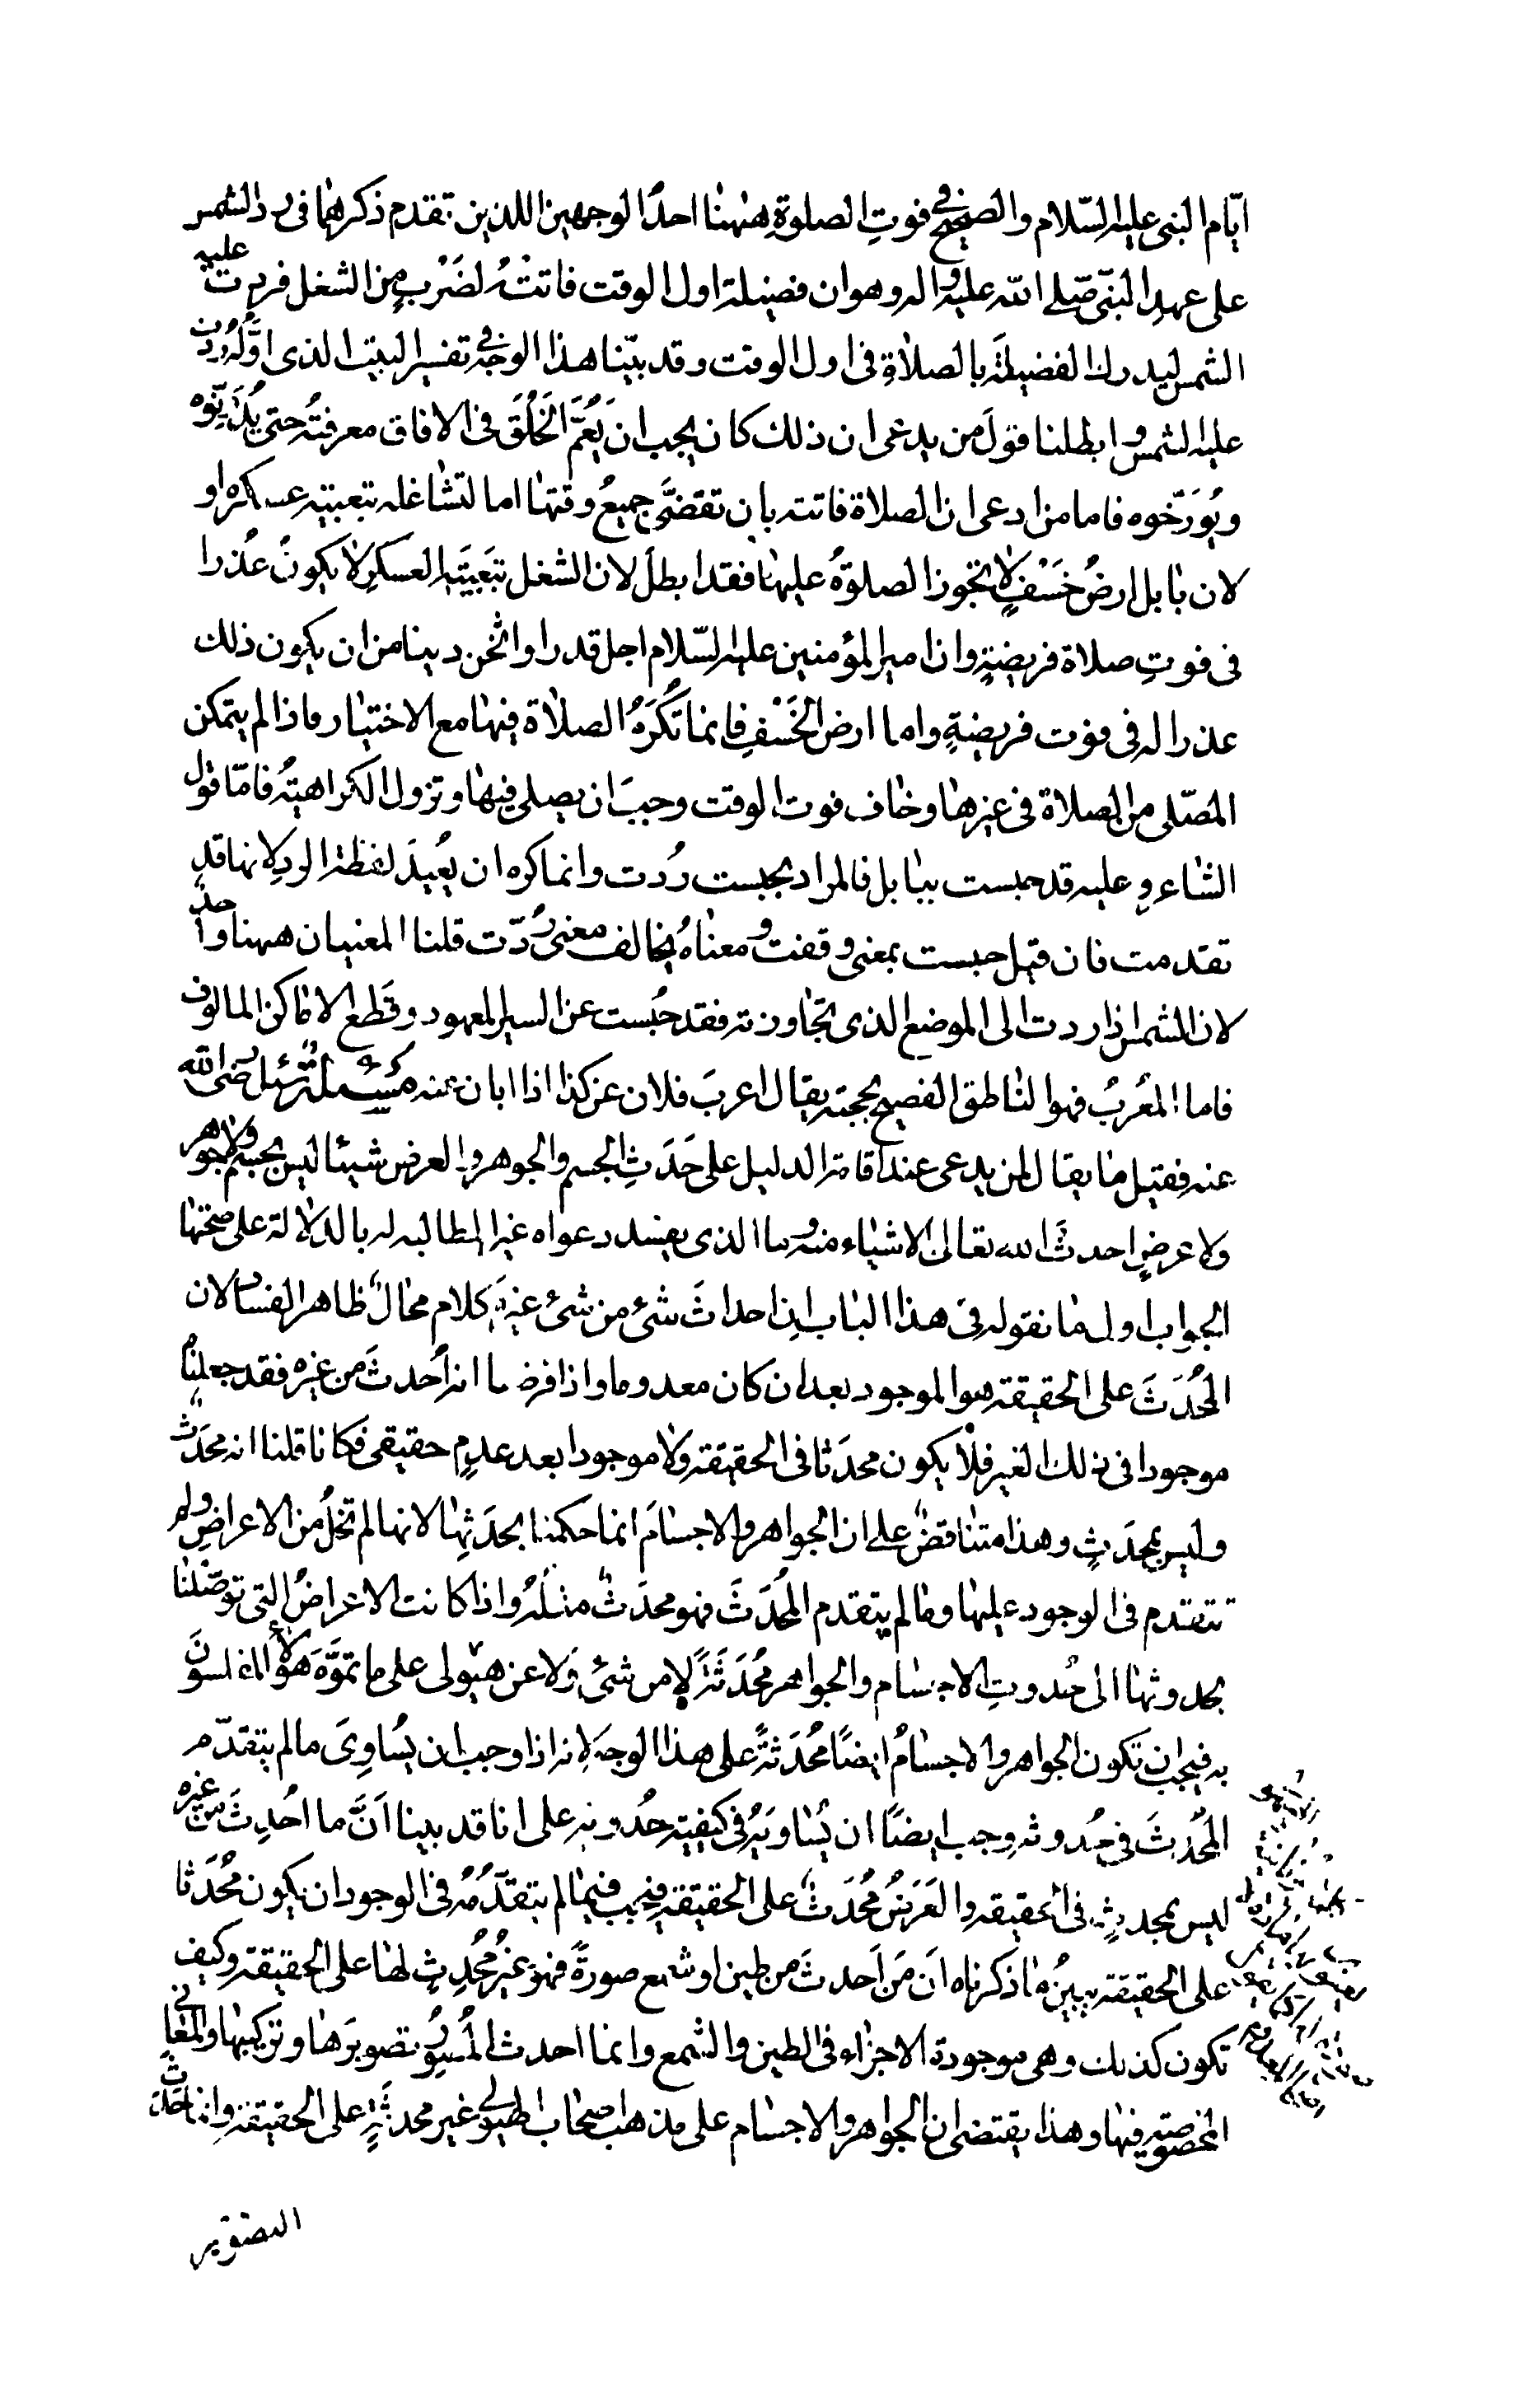 ايّام النبى عليه السّلام والصحيح فى فوتِ الصلوةِ هٰهنا احدُ الوجهين اللذين تقدم ذكرهما فى رد الشمس
على عهدِ النبّى صّلى الله عليه واله وهو ان فضيلة اول الوقت فاتتْهُ لضَرْبٍ من الشغل فردت عليه
الشمس ليدرك الفضيلة بالصلاةِ فى اول الوقت وقد بيّنا هذا الوجه فى تفسير البيت الذى اوّله رُدت
عليه الشمس وابطلنا قولَ من يدعى ان ذلك كان يجب ان يَعُمَّ الخَلْقَ فى الافاق معرفتُه حتى يُدَوِّنوه
ويُورَّخوه فاما من ادعى ان الصلاة فاتته بان تقضَّى جميعُ وقتها اما لتشاغله بتعبيته عسكره او
لان بابل ارضُ خَسْفٍ لا تجوز الصلوةُ عليها فقد ابطلَ لان الشغل بتَعبيَةِ العسكرِ لا يكونُ عُذرا
فى فوتِ صلاة فريضةٍ وان امير المؤمنين عليه السّلام اجل قدرا واثخن دينا من ان يكون ذلك
عذرا له فى فوت فريضةٍ واما ارض الخَسْفِ فانما تُكرَهُ الصلاة فيها مع الاختيار فاذا لم يتمكن
المصّلى من الصلاة فى غيرها وخاف فوت الوقت وجبَ ان يصلى فيها وتزول الكراهيةُ فامّا قول
الشاعر وعليه قد حبست ببابل فالمراد بحبست رُدت وانما كره ان يُعيدَ لفظة الرد لانها قد
تقدمت فان قيل حبست بمعنى وقفت ومعناهُ يخالف معنى رُدّت قلنا المعنيان ههنا واحدٌ
لان الشمس اذا ردت الى الموضع الذى تجاوزته فقد حُبست عن السير المعهود وقَطع الاماكن المالوف
فاما المُعربُ فهو الناطق الفصيح بحجته يقال اعربَ فلان عن كذا اذا ابان عنه مسئلة سُئل رضى الله
عنه فقيل ما يقال لمن يدعى عند اقامة الدليل على حَدَثِ الجسم والجوهر والعرض شيئا ليس بجسم ولا جوهر
ولا عرضٍ احدثَ الله تعالى الاشياء منه وما الذى يفسد دعواه غير المطالبه له بالدلالة على صحتها
الجواب اول ما نقوله فى هذا الباب ان احداثَ شئ من شئ غيرِه كلام محالٌ ظاهر الفساد لان
المُحْدَثَ على الحقيقة هو الموجود بعد ان كان معدوما واذا فرضنا انه اُحدثَ من غيره فقد جعلناه
موجودا فى ذلك الغير فلا يكون محدَثا فى الحقيقة ولا موجودا بعد عدمٍ حقيقى فكانا قلنا انه محدَثٌ
وليس بمحدَثٍ وهذا متناقضٌ على ان الجواهر والاجسامَ انما حكمنا بحدَثِها لانها لم تخلُ من الاعراض ولم
تتقدم فى الوجود عليها وما لم يتقدم المُحدَثَ فهو محدَثٌ مثلُه واذا كانت الاعراضُ التى توصّلنا
بحدوثها الى حُدوثِ الاجسام والجواهر مُحدَثَةً لا من شئٍ ولا عن هيولى على ما تموَّه هؤلاء المغلسونَ
به فيجب ان تكون الجواهر والاجسامُ ايضًا مُحدَثةً على هذا الوجه لانه اذا وجب ان يُساوِىَ ما لم يتقدّم
المُحدَثَ فى حُدوثه وجب ايضًا ان يُساويَه فى كيفيته حُدوثه على انا قد بينا اَنَّ ما احُدِثَ من غيره
ليس بمحدثٍ فى الحقيقه والعَرَضُ مُحدَثٌ على الحقيقة فيجب فيما لم يتقدّمْهُ فى الوجود ان يكون مُحدَثا
على الحقيقة يبينُ ما ذكرناه انَ مَن اَحدثَ من طينٍ او شمع صورةً فهو غيرُ مُحدِثٍ لها على الحقيقة وكيف
تكون كذلك وهى موجودة الاجزاء فى الطين والشمع وانما احدث المُصوِّرُ تصويرَها وتركيبها والمعانى
المخصوصة فيها وهذا يقتضى ان الجواهر والاجسام على مذهب اصحاب الهيولى غير محدثةٍ على الحقيقة وانما حدث
التصوير